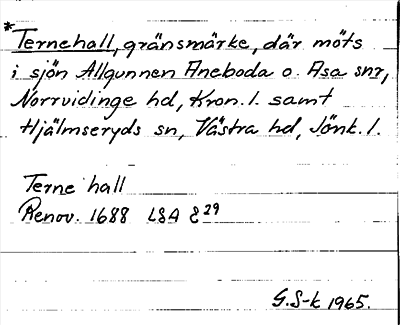 *Ternehall, gränsmärke, där möts
i sjön Allgunnen Aneboda o. Asa snr,
Norrvidinge hd, Kron. l. samt
Hjälmseryds sn, Västra hd, Jönk. l.
Terne hall
Renov. 1688 LSA E29
G.S-k 1965.